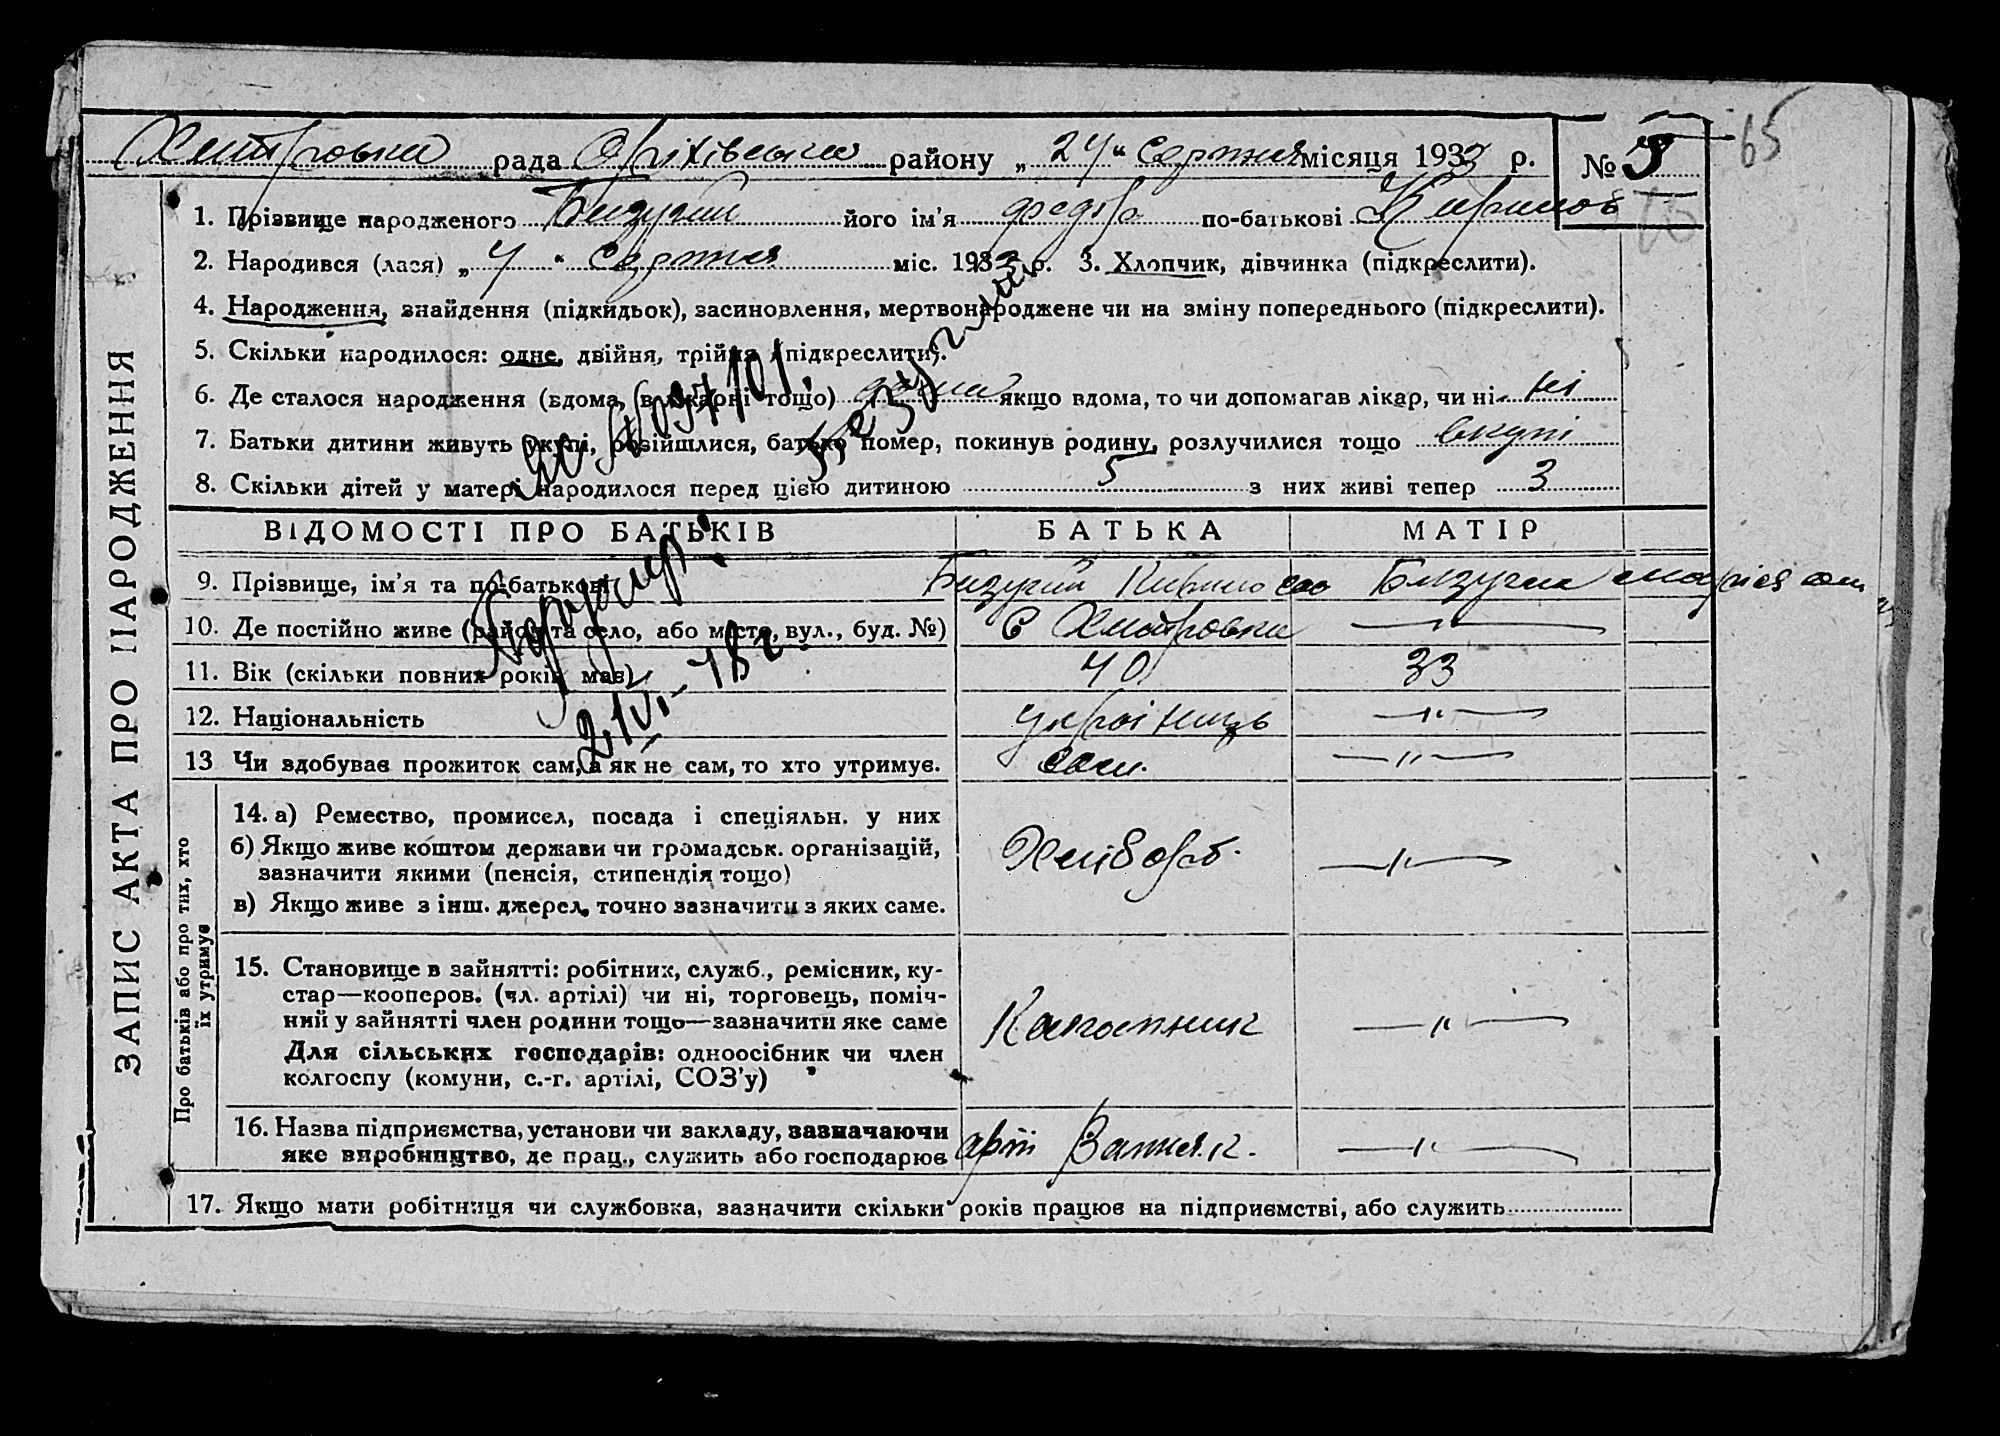 Хитровка рада Оріхівська району „ 24 “ Серпня місяця 1933 р.
№ 9
65
1. Прізвище народженого Бизугий його ім’я Федор по-батькові Кирилов
2. Народився (лася) „ 4 “ Серпня міс. 1933 р. 3. Хлопчик, дівчинка (підкреслити).
4. Народження, знайдення (підкидьок), засиновлення, мертвонароджене чи на зміну попереднього (підкреслити).
5. Скільки народилося: одне, двійня, трійня (підкреслити).
6. Де сталося народження (вдома, в лікарні тощо) дома якщо вдома, то чи допомагав лікар, чи ні ні
7. Батьки дитини живуть укупі, розійшлися, батько помер, покинув родину, розлучилися тощо вкупі
8. Скільки дітей у матері народилося перед цією дитиною 5 з них живі тепер 3
ВІДОМОСТІ ПРО БАТЬКІВ БАТЬКА МАТІР
9. Прізвище, ім’я та по-батькові Бизугий Бизугая Марія
10. Де постійно живе (район та село, або місто, вул., буд. №) С Хитровка — „ —
11. Вік (скільки повних років має) 40 33
12. Національність українець — „ —
13 Чи здобуває прожиток сам, а як не сам, то хто утримує. сам. — „ —
14. а) Ремество, промисел, посада і спеціяльн. у них
б) Якщо живе коштом держави чи громадськ. організацій,
зазначити якими (пенсія, стипендія тощо)
Хлібороб. — „ —
в) Якщо живе з інш. джерел, точно зазначити з яких саме.
15. Становище в зайнятті: робітник, служб., ремісник, ку-
стар—кооперов. (чл. артілі) чи ні, торговець, поміч-
ний у зайнятті член родини тощо—зазначити яке саме
Для сільських господарів: одноосібник чи член
колгоспу (комуни, с.-г. артілі, СОЗ’у)
Колгоспник — „ —
16. Назва підприємства, установи чи закладу, зазначаючи
яке виробництво, де прац., служить або господарює
арт — „ —
17. Якщо мати робітниця чи службовка, зазначити скільки років працює на підприємстві, або служить
ЗАПИС АКТА ПРО НАРОДЖЕННЯ
Про батьків або про тих, хто
їх утримує
№ 097101.